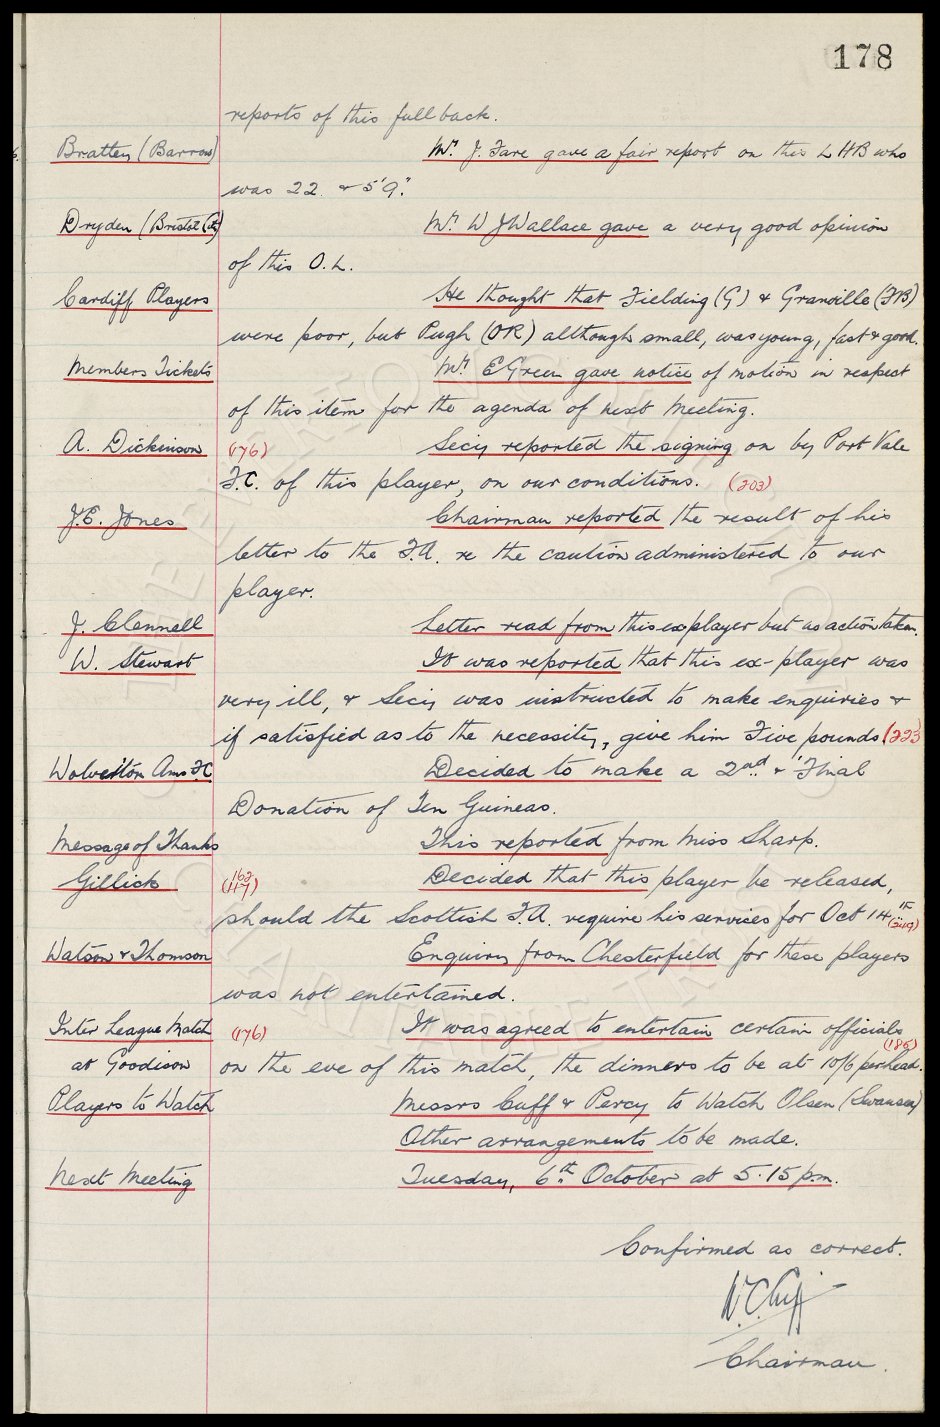 178
reports of this full back.
Bratten (Barrow) Mr. J. Fare gave a fair report on this L H B who
was 22. & 5'9".
Dryden (Bristol City) Mr. W J Wallace gave a very good opinion
of this O.L.
Cardiff Players He thought that Fielding (G) & Granville (FB)
were poor, but Pugh (OR) although small, was young, fast & good.
Members Tickets Mr. E Green gave notice of motion in respect
of this item for the agenda of next Meeting.
A. Dickinson (176) Secy reported the signing on by Port Vale
F.C. of this player, on our conditions. (203)
J.E. Jones Chairman reported the result of his
letter to the F.A. re the caution administered to our
player.
J. Clennell Letter read from this explayer but no action taken.
W. Stewart It was reported that this ex-player was
very ill, & Secy was instructed to make enquiries &
if satisfied as to the necessity, give him Five pounds (223)
Wolverton Ams F.C Decided to make a 2nd & Final
Donation of Ten Guineas.
Message of Thanks This reported from Miss Sharp.
Gillick (117) 162 Decided that this player be released,
should the Scottish F.A. require his services for Oct 14th
Watson & Thomson Enquiry from Chesterfield for these players
was not entertained.
Inter League Match (176) It was agreed to entertain certain officials
at Goodison on the eve of this match, the dinners to be at 10/6 per head. (185)
Players to Watch Messrs Cuff & Percy to Watch Olsen (Swansea)
Other arrangements to be made.
Next Meeting Tuesday, 6th October at 5.15 p.m.
Confirmed as correct.
W.C. Cuff
Chairman.